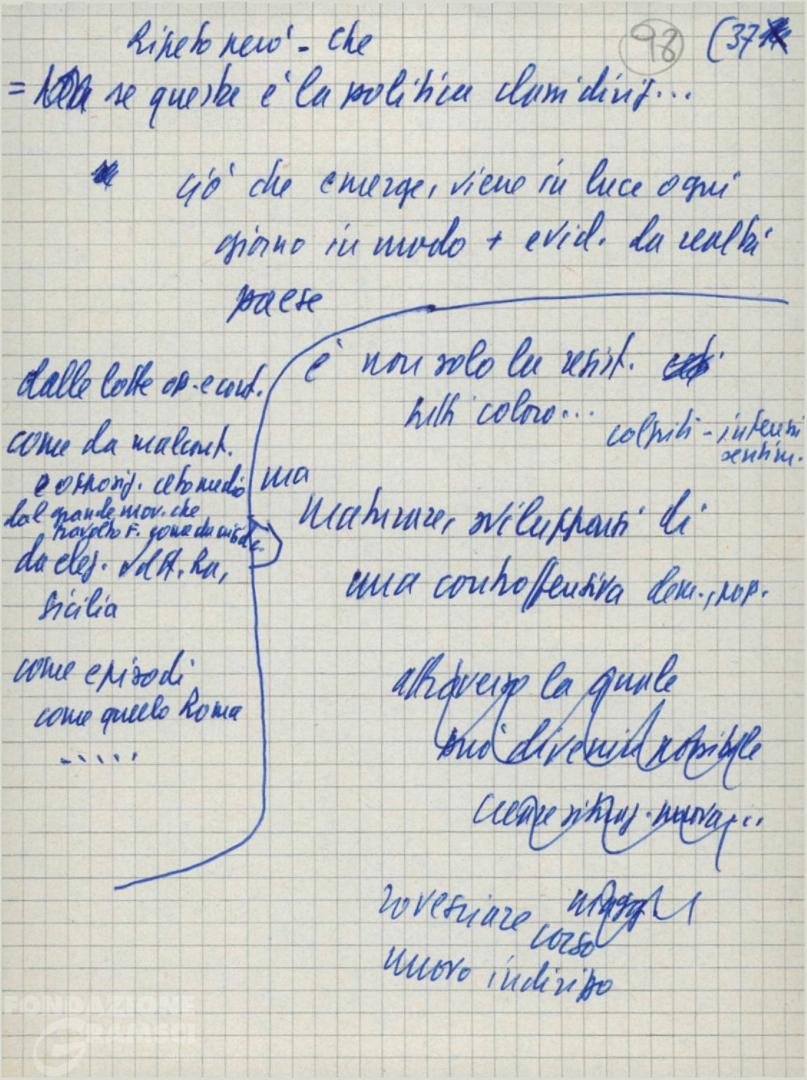 98 (37
Ripeto però - che
= Ma se questa è la politica classi dirig...
ciò che emerge, viene in luce ogni
giorno in modo + evid. da realtà
paese
è non solo la resist.
tutti coloro...
colpiti - intensi
sentim.
ma
maturare, svilupparsi di
una controffensiva dem., pop.
attraverso la quale
può divenire possibile
creare situaz. nuova...
rovesciare
corso
nuovo indirizzo
dalle lotte op. e cont.
come da malcont.
e opposiz. ceto medio
dal grande mov. che
da elez. Vald'A. Ra,
Sicilia
come episodi
come quello Roma
.....
FONDAZIONE
GRAMSCI